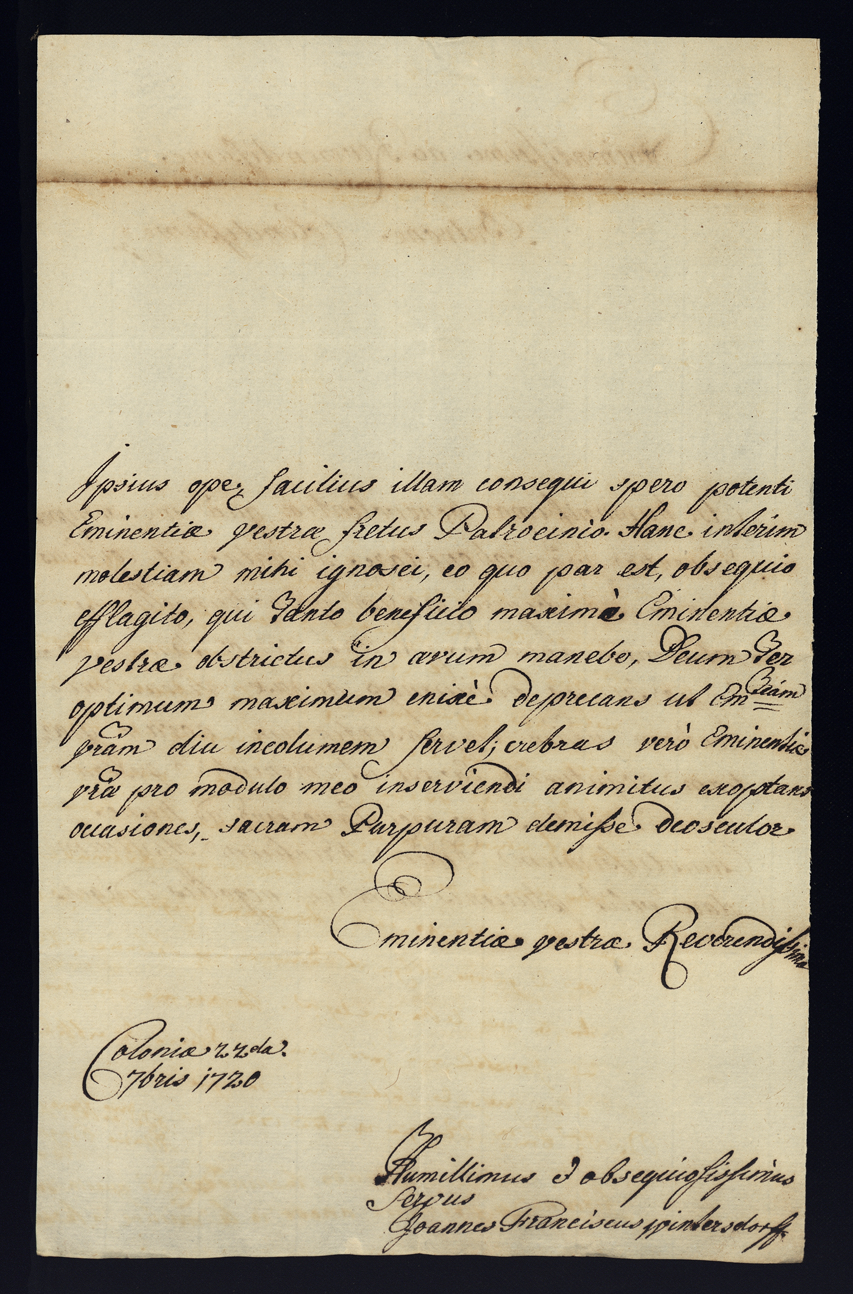 Ipsius ope, facilius illam consequi spero potenti
Eminentiæ vestræ fretus Patrocinio. Hanc interim
molestiam mihi ignosci, eo quo par est, obsequio
efflagito, qui tanto beneficio maximè Eminentiæ
vestræ obstrictus in ævum manebo, Deum ter
optimum maximum enixè deprecans ut Emtiam
vram diu incolumem servet; crebras verò Eminentiæ
vræ pro modulo meo inserviendi animitus exoptans
occasiones, sacram Purpuram demisse deosculor
Eminentiæ vestræ Reverendissimæ
Coloniæ 22da.
7bris 1720
Humillimus & obsequiosissimus
servus
Joannes Franciscus wintersdorff